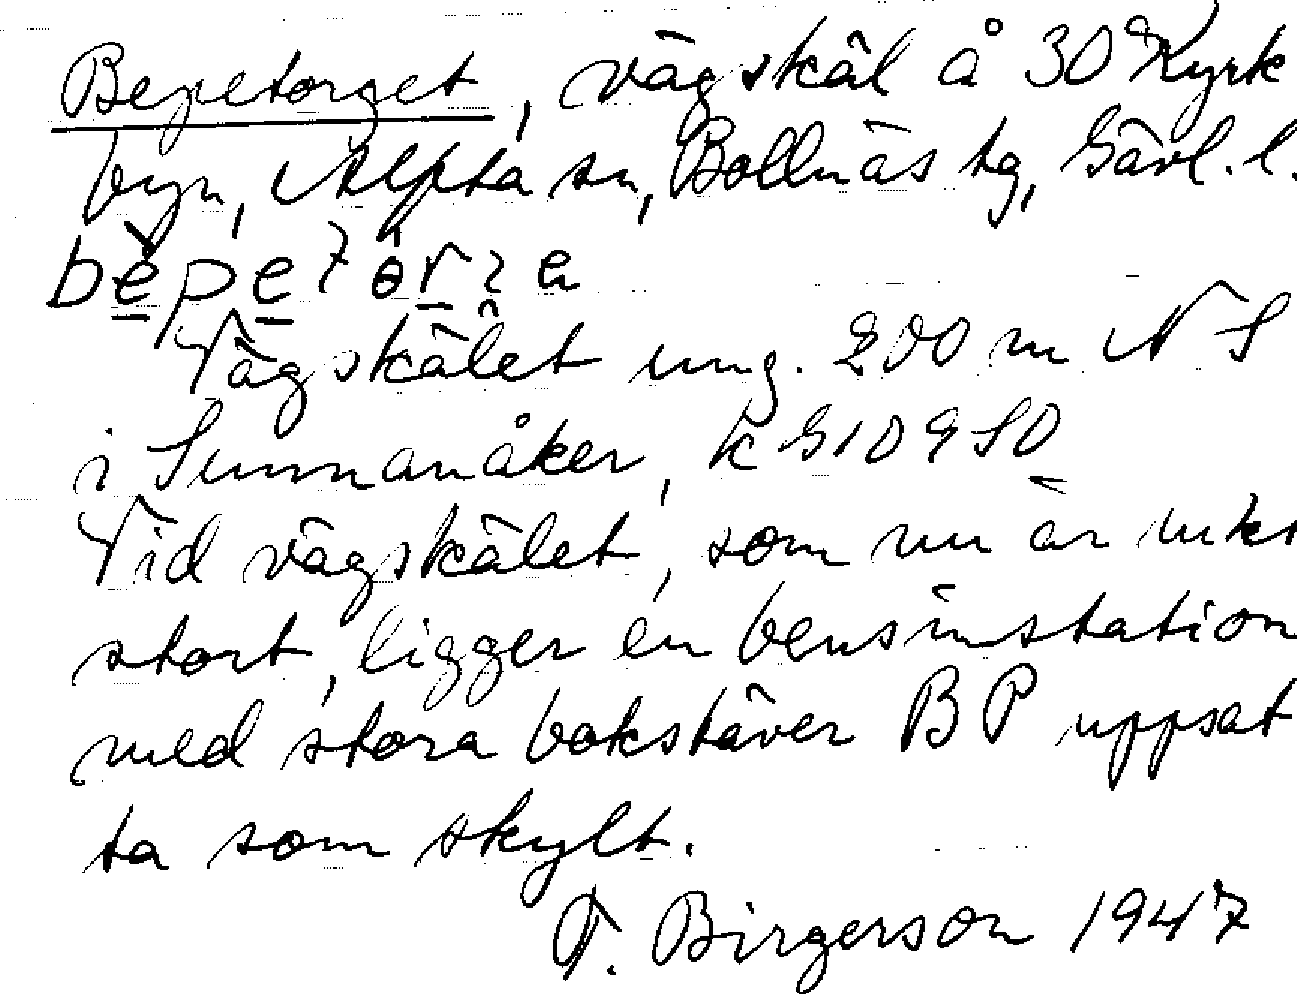 Bepetorget, vägskäl å 30 Kyrk
byn, Alfta sn, Bollnäs tg, Gävl. l.
bèpetörza
Vägskälet ung. 200 m N S
i Sunnanåker, k G10950
Vid vägskälet, som nu är
stort, ligger en bensinstation
med stora bokstäver BP uppsat
ta som skylt.
F. Birgerson 1947